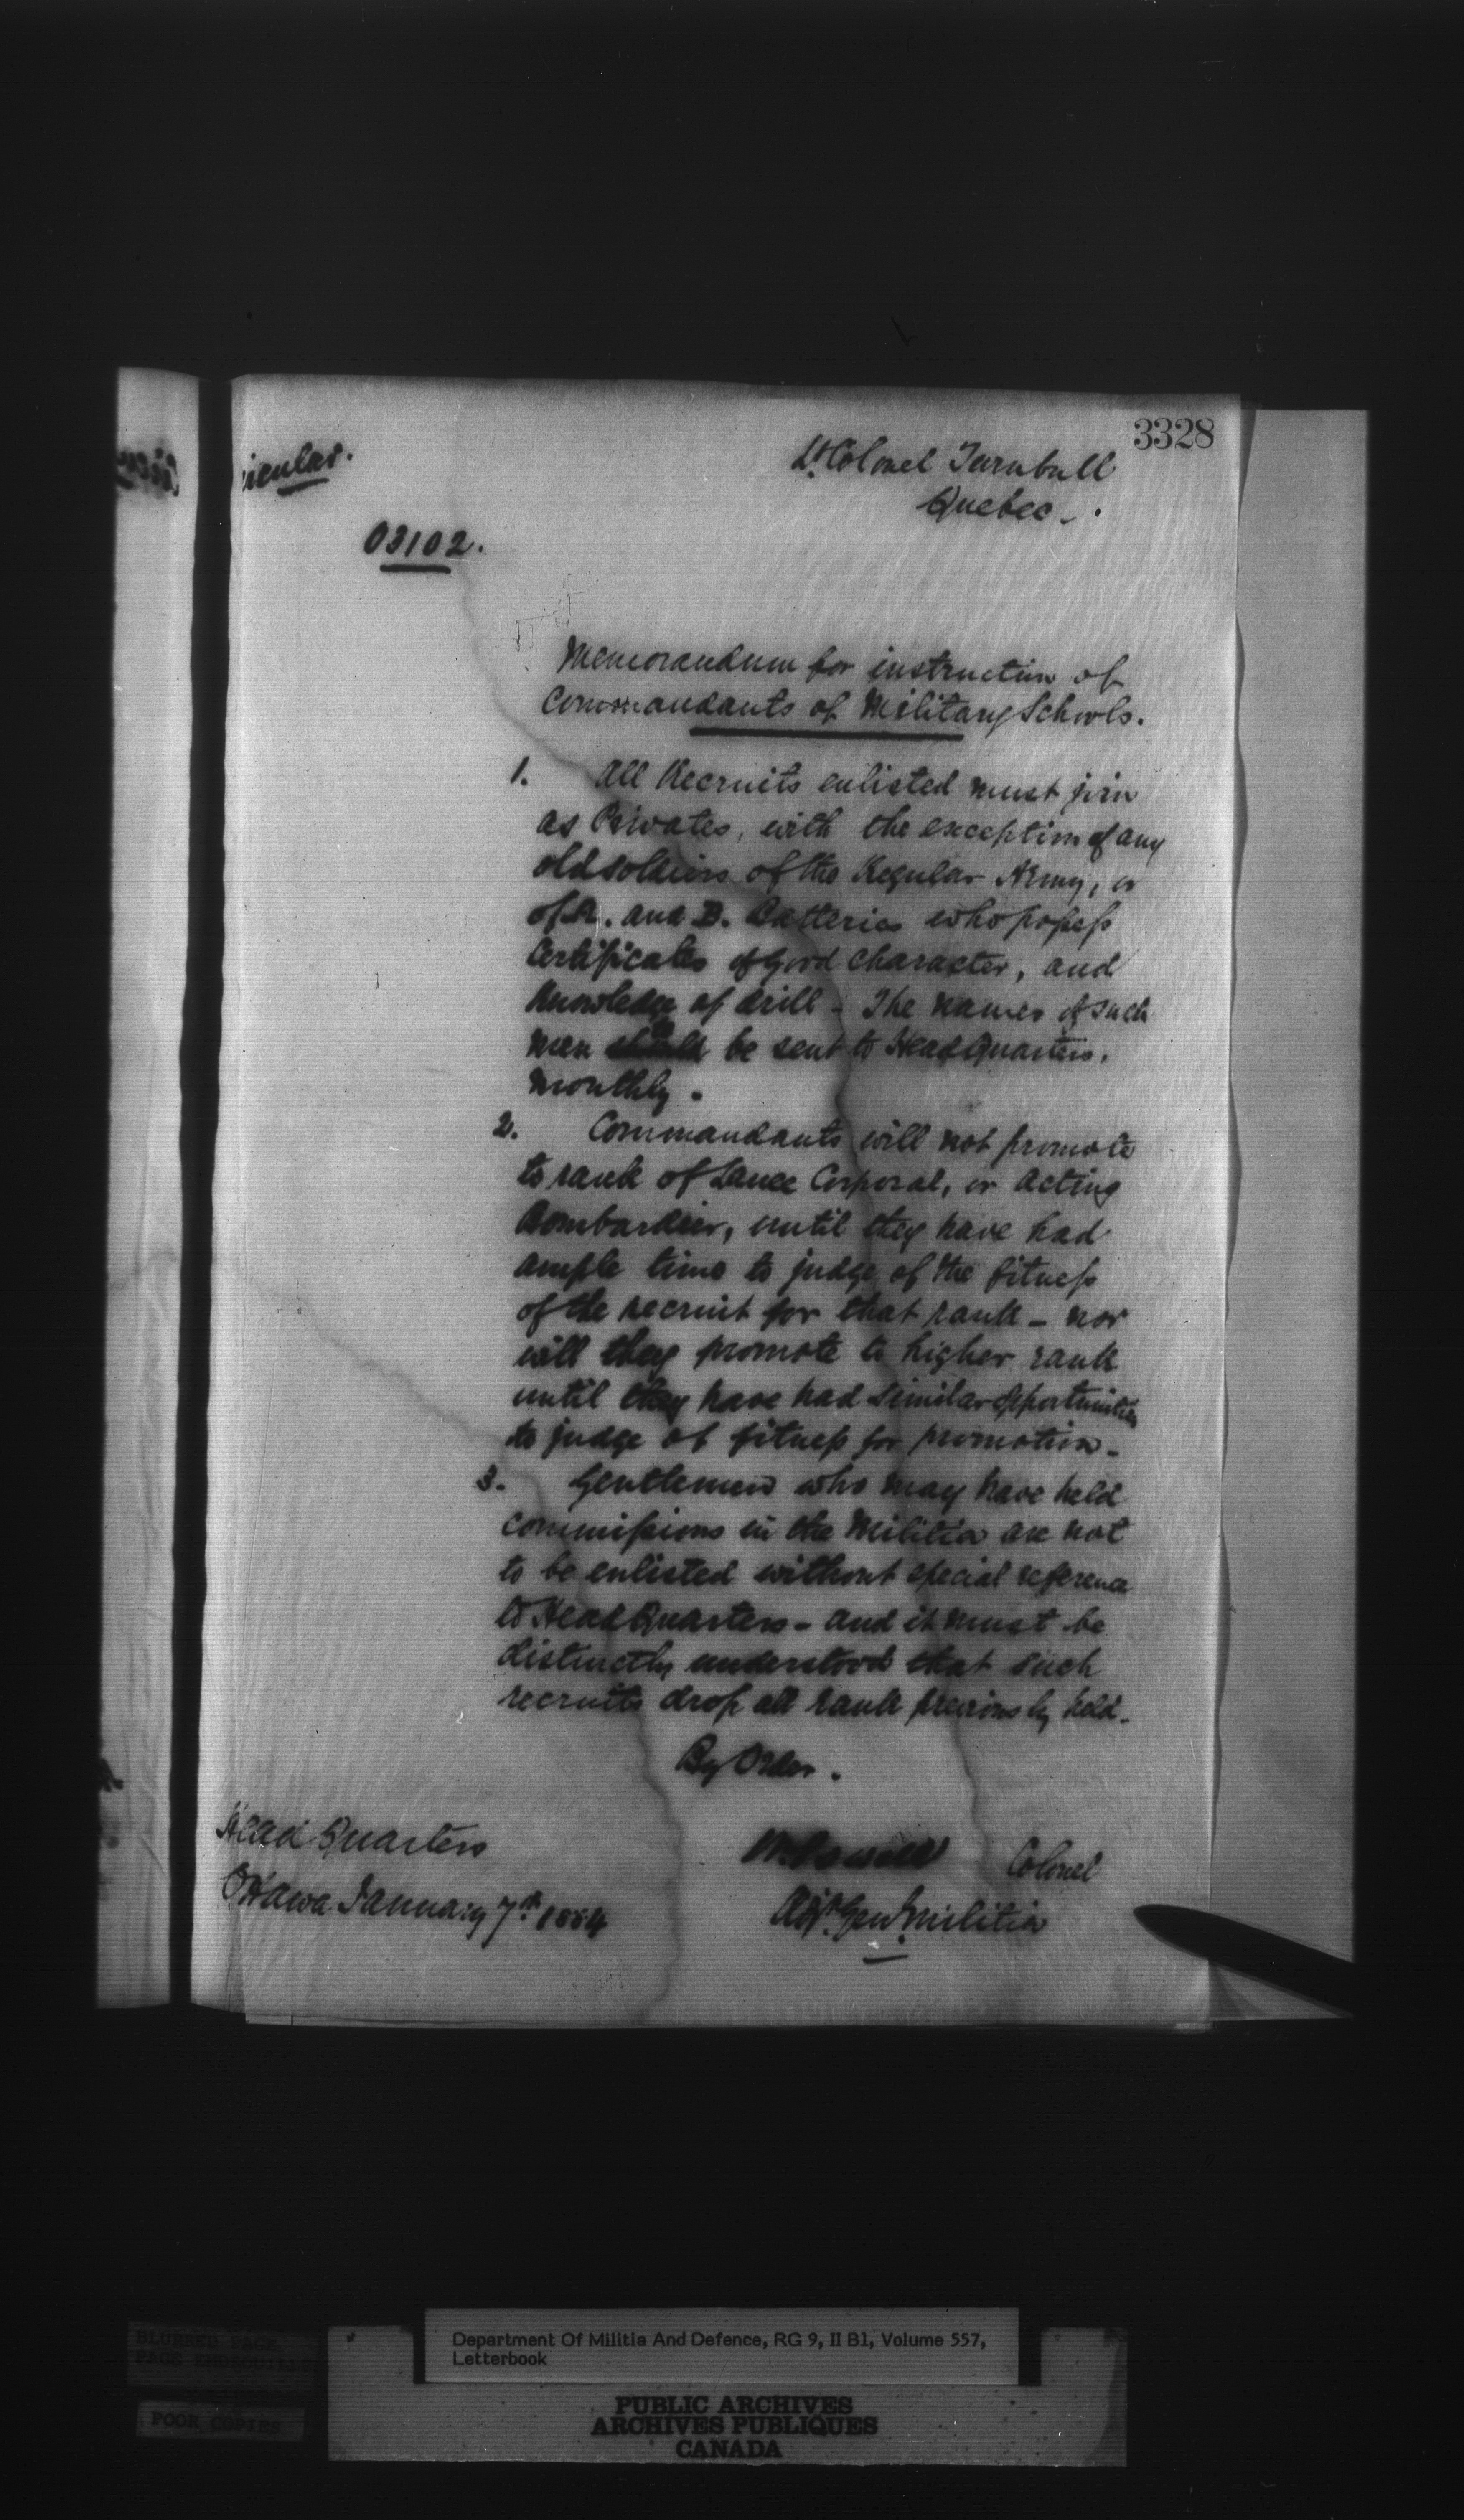 3328
icular.
Lt. Colonel Turnbull
Quebec.
03102.
Memorandum for instruction of
Commandants of Military Schools.
1. All Recruits enlisted must join
as Privates, with the exception of any
old soldiers of the Regular Army, or
of A. and B. Batteries who possess
Certificates of Good character, and
knowledge of drill - The names of such
men be sent to Head Quarters.
monthly.
2. Commandants will not promote
to rank of Lance Corporal, or Acting
Bombardier, until they have had
ample time to judge of the fitness
of the recruit for that rank - nor
will they promote to higher rank
until they have had similar opportunities
to judge of fitness for promotion -
3. Gentlemen who may have held
commissions in the Militia are not
to be enlisted without special reference
to Head Quarters - and it must be
distinctly understood that such
recruits drop all rank previously held -
By Order.
Head Quarters
Ottawa January 7th 1884
W. Powell Colonel
Adjt. Genl. Militia
BLURRED PAGE
PAGE EMBROUILLE
POOR COPIES
Department Of Militia And Defence, RG 9, II B1, Volume 557,
Letterbook
PUBLIC ARCHIVES
ARCHIVES PUBLIQUES
CANADA